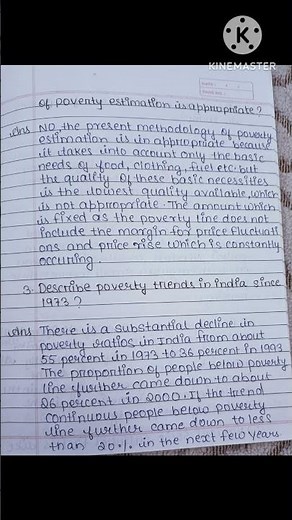 KINEMASTER
of poverty estimation is appropriate?
Ans NO, the present methodology of poverty
estimation is in appropriate because
it takes into account only the basic
needs of food, clothing, fuel etc. but
the quality of these basic necessities
is the lowest quality available, which
is not appropriate. The amount which
is fixed as the poverty line does not
include the margin for price fluctuati
ons and price rise which is constantly
occuring.
3. Describe poverty trends in india since
1973?
Ans There is a substantial decline in
poverty ratios in India from about
55 percent in 1973 to 36 percent in 1993
The proportion of people below poverty
line further came down to about
26 percent in 2000. If the trend
continuous people below poverty
line further came down to less
than 20% in the next few years.